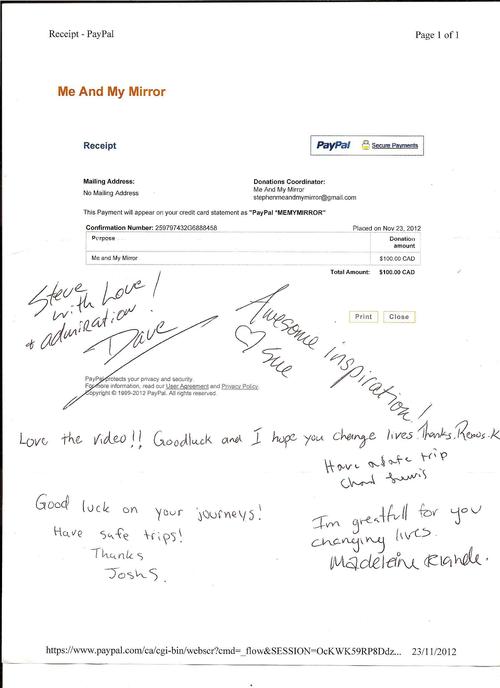 Receipt - PayPal Page 1 of 1
Me And My Mirror
Receipt PayPal Secure Payments
Mailing Address: Donations Coordinator:
No Mailing Address Me And My Mirror
stephenmeandmymirror@gmail.com
This Payment will appear on your credit card statement as "PayPal *MEMYMIRROR"
Confirmation Number: 259797432G6888458 Placed on Nov 23, 2012
Purpose Donation amount
Me and My Mirror $100.00 CAD
Total Amount: $100.00 CAD
Print Close
Steve
with Love!
+ admiration
Dave
Awesome inspiration!
♡ Sue
PayPal protects your privacy and security.
For more information, read our User Agreement and Privacy Policy.
Copyright © 1999-2012 PayPal. All rights reserved.
Love the video!! Goodluck and I hope you change lives. Thanks, Remos.K
Have a safe trip
Chad
Good luck on your journeys!
Have safe trips!
Thanks
Josh S.
I'm greatfull for you
changing lives.
Madeleine
https://www.paypal.com/ca/cgi-bin/webscr?cmd=_flow&SESSION=OcKWK59RP8Ddz... 23/11/2012